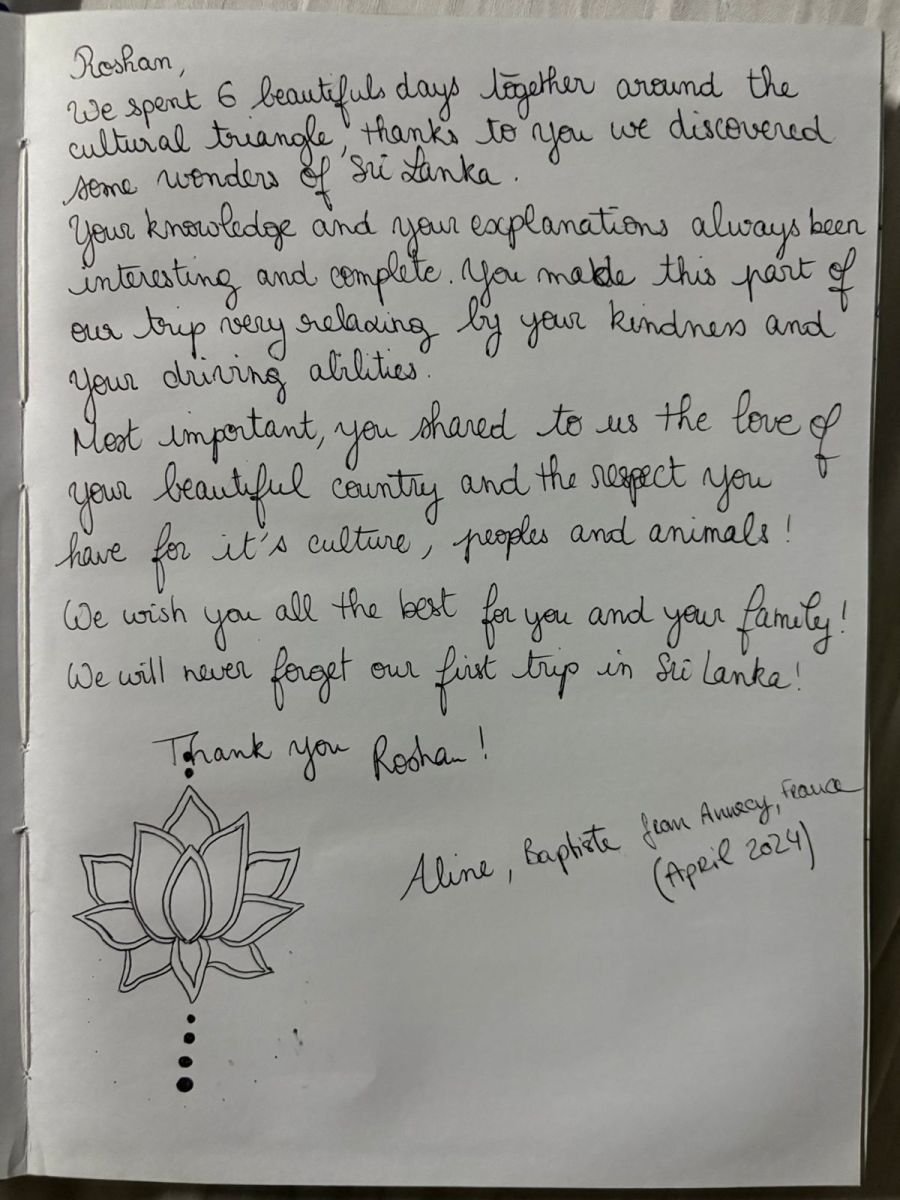 Roshan,
We spent 6 beautifuls days together around the
cultural triangle, thanks to you we discovered
some wonders of Sri Lanka.
Your knowledge and your explanations always been
interesting and complete. You made this part of
our trip very relaxing by your kindness and
your driving abilities.
Most important, you shared to us the love of
your beautiful country and the respect you
have for it's culture, peoples and animals!
We wish you all the best for you and your family!
We will never forget our first trip in Sri Lanka!
Thank you Roshan!
Aline, Baptiste from Annecy, France
(April 2024)